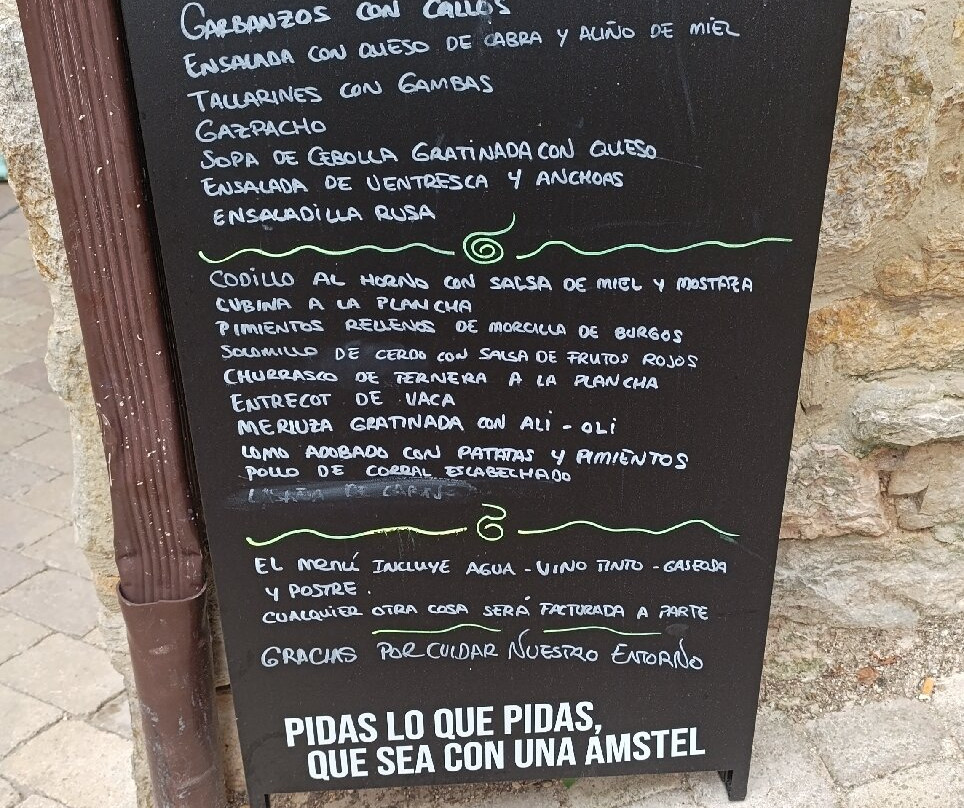 GARBANZOS CON CALLOS
ENSALADA CON QUESO DE CABRA Y ALIÑO DE MIEL
TALLARINES CON GAMBAS
GAZPACHO
SOPA DE CEBOLLA GRATINADA CON QUESO
ENSALADA DE VENTRESCA Y ANCHOAS
ENSALADILLA RUSA
CODILLO AL HORNO CON SALSA DE MIEL Y MOSTAZA
CUBINA A LA PLANCHA
PIMIENTOS RELLENOS DE MORCILLA DE BURGOS
SOLOMILLO DE CERDO CON SALSA DE FRUTOS ROJOS
CHURRASCO DE TERNERA A LA PLANCHA
ENTRECOT DE VACA
MERLUZA GRATINADA CON ALI - OLI
LOMO ADOBADO CON PATATAS Y PIMIENTOS
POLLO DE CORRAL ESCABECHADO
LASAÑA DE
EL MENÚ INCLUYE AGUA - VINO TINTO - GASEOSA
Y POSTRE.
CUALQUIER OTRA COSA SERÁ FACTURADA A PARTE
GRACIAS POR CUIDAR NUESTRO ENTORNO
PIDAS LO QUE PIDAS,
QUE SEA CON UNA AMSTEL